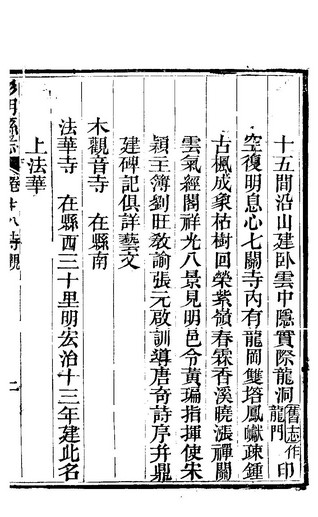 十五間沿山建臥雲中隱實際龍洞舊志作龍門印
空復明息心七關寺内有龍岡雙塔鳳巘疎鍾
古楓成象枯樹回榮紫嶺春霖香溪曉漲禪關
雲氣經閣祥光八景見明邑令黃瑞指揮使宋
穎主簿劉旺敎諭張元啟訓導唐奇詩序并鼎
建碑記俱詳藝文
木觀音寺　在縣南
法華寺　在縣西三十里明宏治十三年建此名
上法華
卷十八寺觀
二